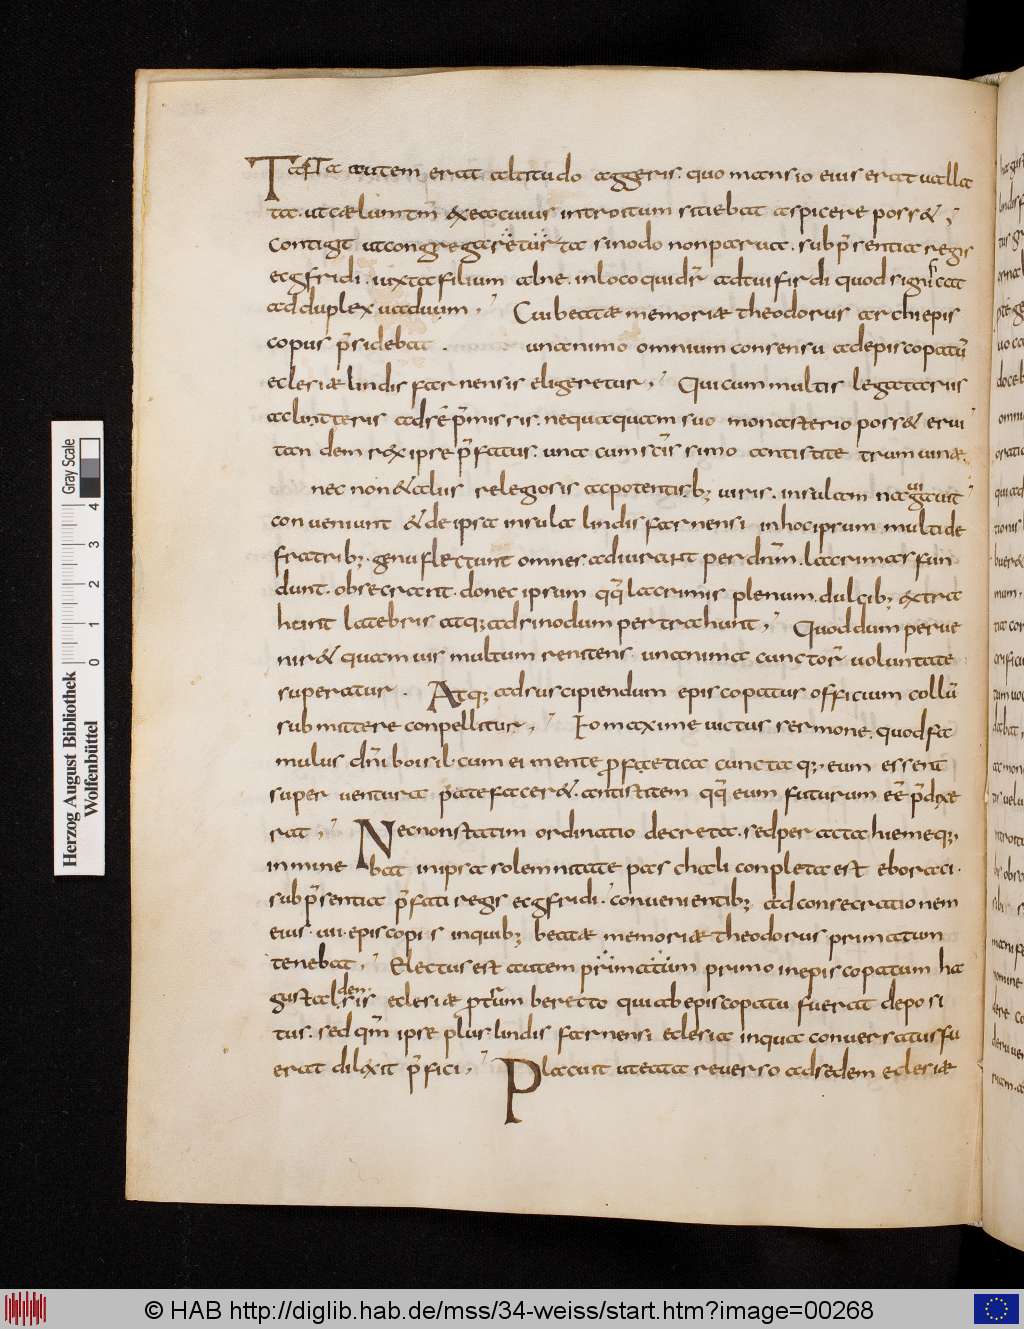 Tanta autem erat altitudo aggeris. quo mansio eius erat ualla
ta. ut cælum tm̄ ex ea cuius introitum sitiebat aspicere poss&;
Contigit ut congregaretur ta sinodo non parua. sub p̄sentia regis
ecgfridi. iuxta filium alne. in loco qui dr̄ ad tuifirdi quod significat
ad duplex uadum; Cui beatæ memoriæ theodorus archiepis
copus p̄sidebat. unanimo omnium consensu ad episcopatū
eclesiæ lindisfarnensis eligeretur; Qui cum multis legatariis
ac litteris ad se p̄missis. nequaquam suo monasterio poss& erui
tandem rex ipse p̄fatus. una cum scīssimo antistite trumuinæ
nec non & alius relegiosis ac potentisb; uiris. insulam nauigauit
conueniunt & de ipsa insula lindisfarnensi in hoc ipsum multi de
fratrib; genuflectunt omnes. adiurant per dnm̄. lacrimas fun
dunt. obsecrant. donec ipsum qq̄ lacrimis plenum dulcib; extra
hunt latebris atq; ad sinodum pertrahunt; Quo dum perue
nir& quamuis multum renitens. unanima cunctor̄ uoluntate
superatur. Atq; ad suscipiendum episcopatus officium collū
submittere conpellitur; Eo maxime uictus sermone. quod fa
mulus dn̄i boisil. cum ei mente profætica cuncta q; eum essent
super uentura p̄atefacer&. antistitem qq̄ eum futurum eē p̄dixe
rat; Nec non statim ordinatio decreta. sed peracta hieme q;
inminebat in ipsa solemnitate paschali conpleta est eboraci.
sub p̄sentia p̄fati regis ecgfridi. conuenientib; ad consecrationem
eius. uii. episcopis in quib; beatæ memoriæ theodorus primatum
tenebat; Electus est autem primatum primo in episcopatum ha
gustaldensis eclesiæ pro tum berecto qui ab episcopatu fuerat deposi
tus. sed qm̄ ipse plus lindisfarnensi eclesiæ in qua conuersatus fu
erat dilexit p̄fici; Placuit ut ea ta reuerso ad sedem eclesiæ
Herzog August Bibliothek
Wolfenbüttel
0 1 2 3 4
Gray Scale
© HAB http://diglib.hab.de/mss/34-weiss/start.htm?image=00268